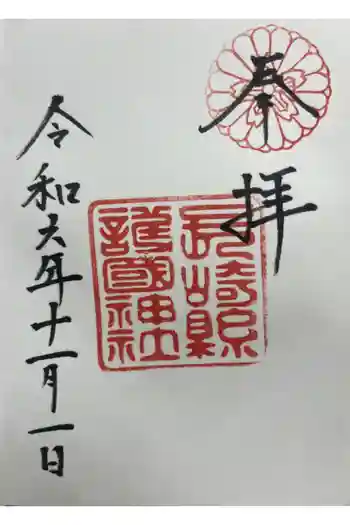 奉拝
長崎縣護國神社
令和六年十一月一日